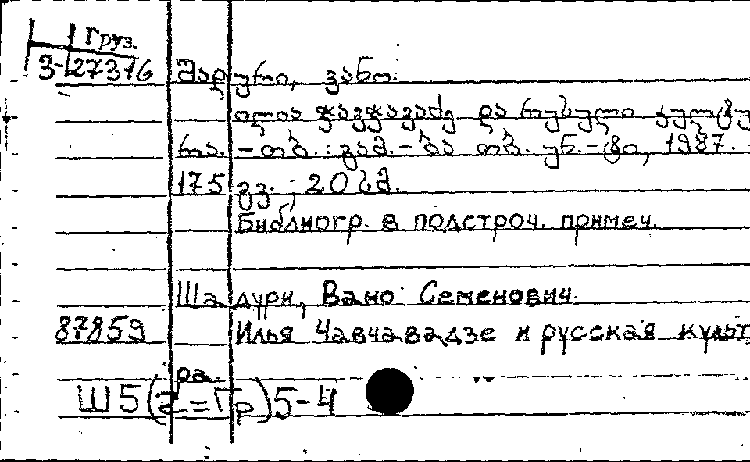 Груз.
3-27376 შადური, ვანო.
ილია ჭავჭავაძე და რუსული კულტუ
რა. - თბ. : გამ.-ბა თბ. უნ.-ტი, 1987. -
175 გვ. ; 20 სმ.
Библиогр. в подстроч. примеч.
Шадури, Вано Семенович.
87859 Илья Чавчавадзе и русская культ
ра.
Ш5(2=Гр)5-4